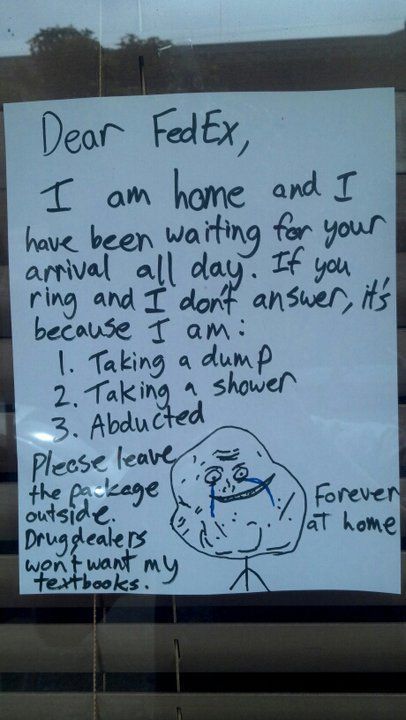 Dear FedEx,
I am home and I
have been waiting for your
arrival all day. If you
ring and I don't answer, it's
because I am:
1. Taking a dump
2. Taking a shower
3. Abducted
Please leave
the package
outside.
Drugdealers
won't want my
textbooks.
Forever
at home